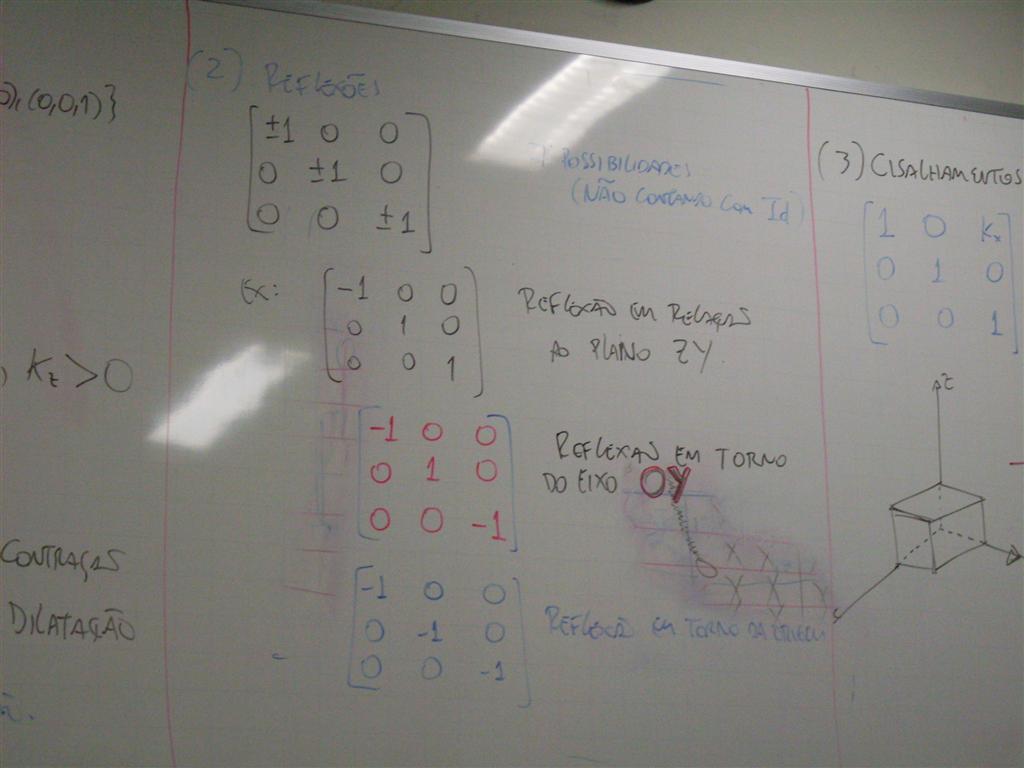 ), (0,0,1)}
) Kz > 0
CONTRAÇÃO
DILATAÇÃO
(2) REFLEXÕES
±1 0 0
0 ±1 0
0 0 ±1
7 POSSIBILIDADES
(NÃO CONTANDO COM Id)
EX:
-1 0 0
0 1 0
0 0 1
REFLEXÃO EM RELAÇÃO
AO PLANO ZY.
-1 0 0
0 1 0
0 0 -1
REFLEXÃO EM TORNO
DO EIXO OY
-1 0 0
0 -1 0
0 0 -1
REFLEXÃO EM TORNO DA ORIGEM
(3) CISALHAMENTOS
1 0 Kx
0 1 0
0 0 1
z